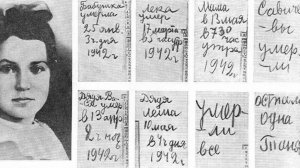 Бабушка
умерла
25 янв.
3 ч дня
1942г
Лека
умер
17 марта
в 5 час утр
1942г
Мама
в 13 мая
в 7 30
час
утра
1942г
Савиче-
вы
умер-
ли
Дядя Ва-
ся умер
в 13 апр
2 ч ноч
1942г
Дядя
Леша
10 мая
в 4 ч дня
1942г
Умер-
ли
все
Осталась
одна
Таня